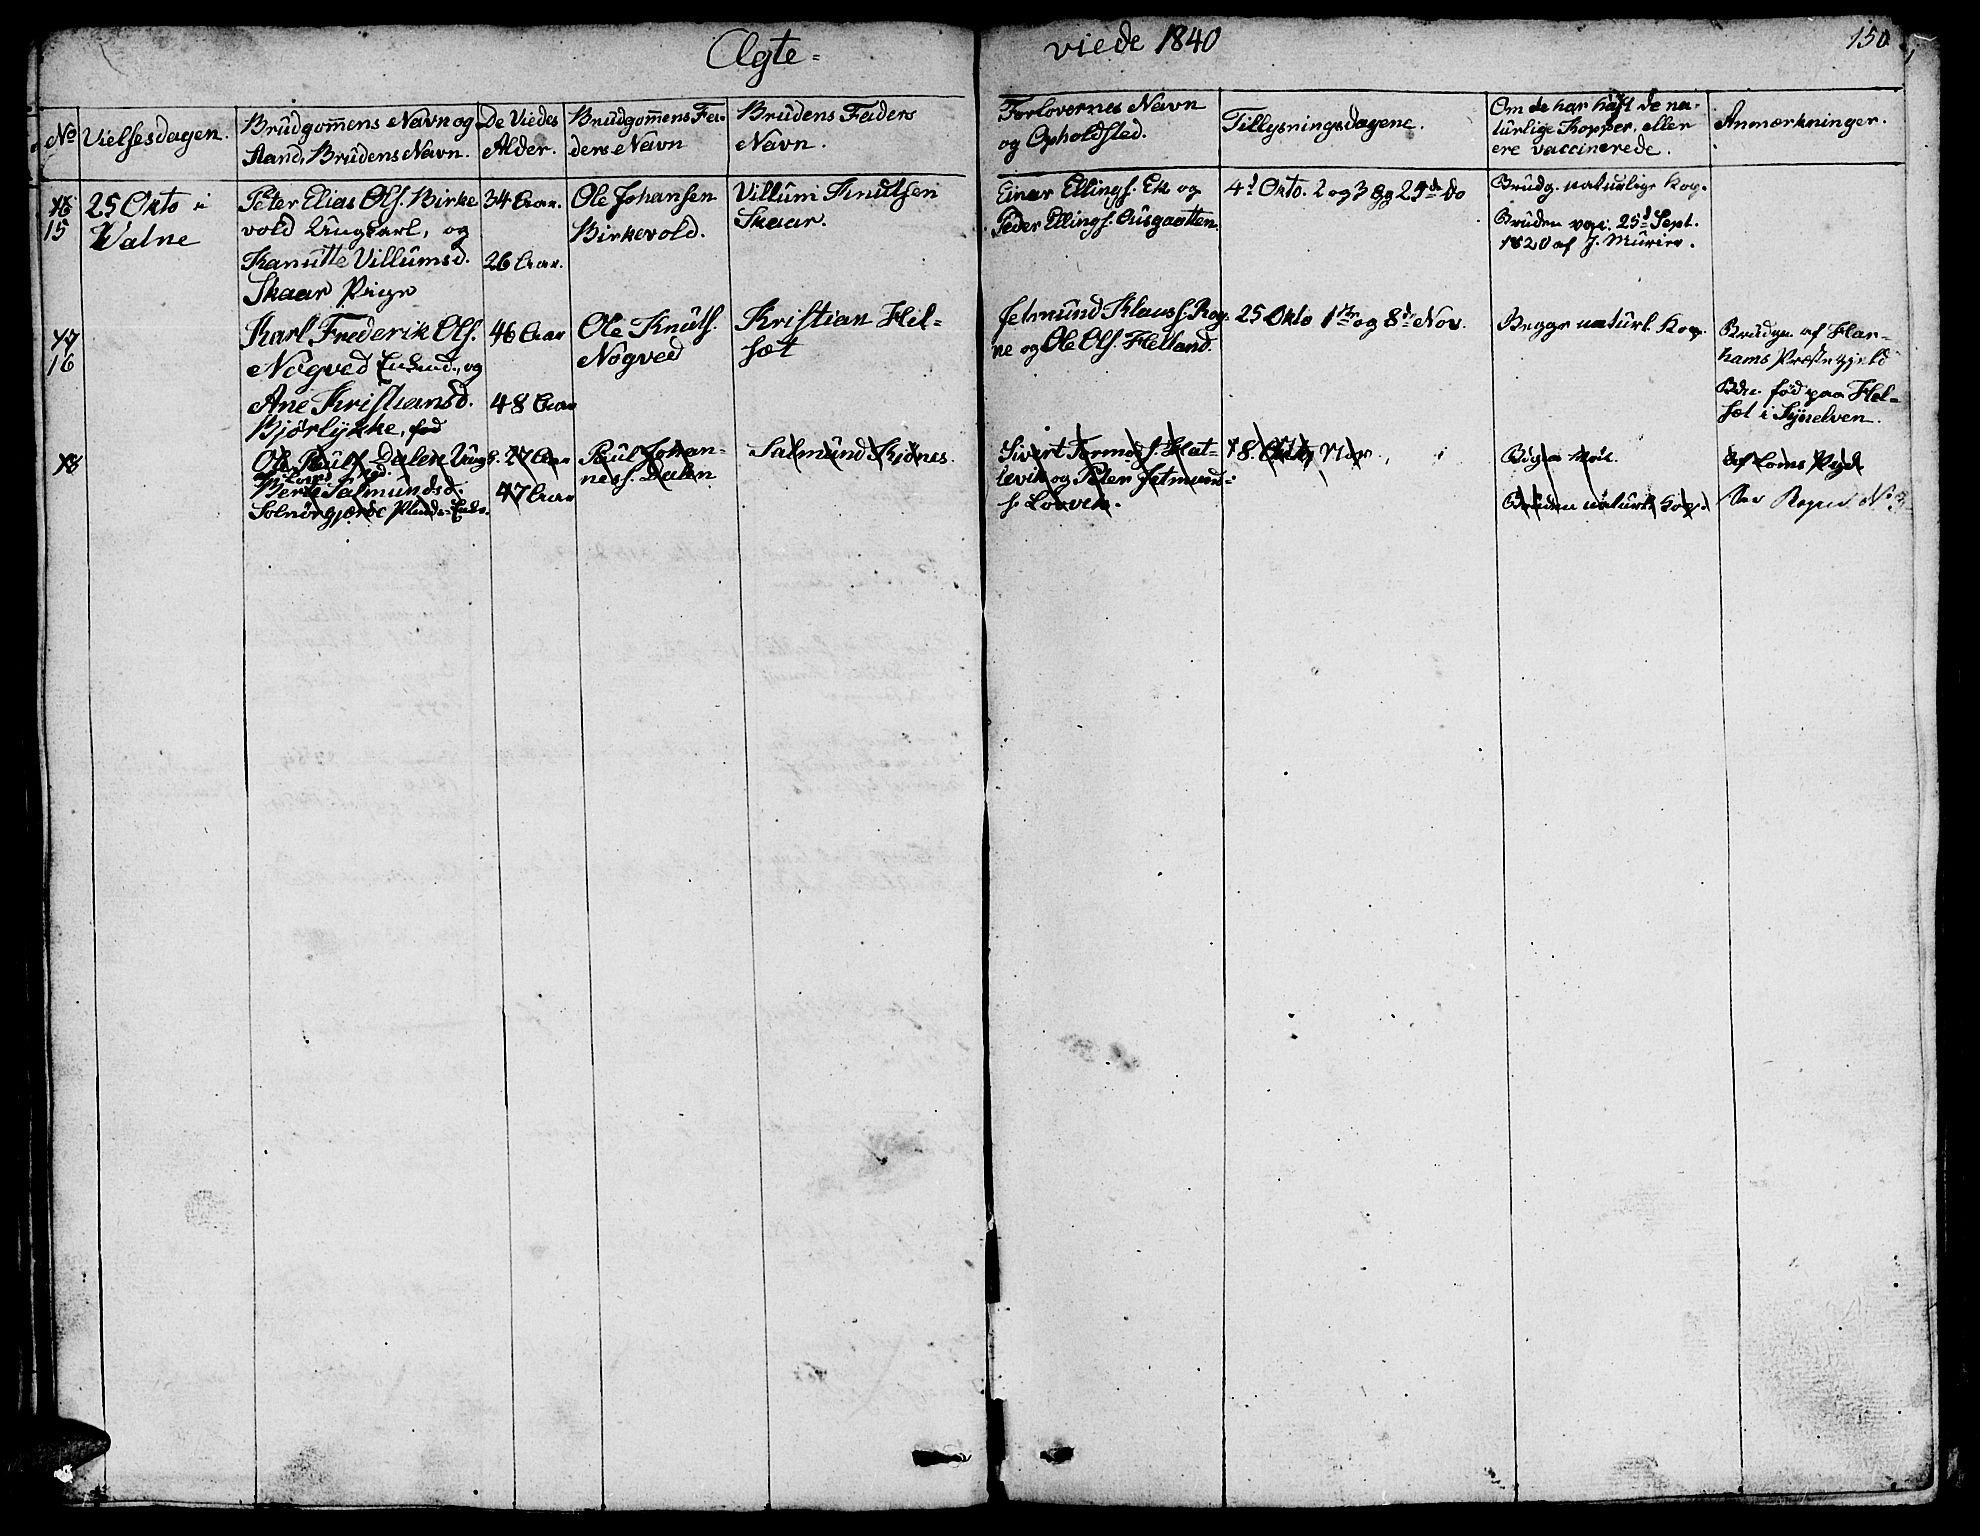 Ægte=
viede 1840
150
No
Vielsesdagen.
Brudgom̄ens Navn og
Stand, Brudens Navn.
De Viedes
Alder.
Brudgom̄ens Fa-
ders Navn
Brudens Faders
Navn.
Forlovernes Navn
og Opholdsted.
Tillysningsdagene.
Om de har haft de na-
turlige Kopper, eller
ere vaccinerede.
Anmærkninger.
15
25 Okto i
Valne
Peter Elias Ols. Birke
vold Ungkarl, og
Kanutte Villumsd.
Skaar Pige
34 Aar.
26 Aar.
Ole Johansen
Birkevold.
Villum Knutsen
Skaar.
Einar Ellings. Ek og
Peder Ellings. Ausgaatten.
4d Okto.
Brudg. naturlige Kop.
Bruden vac. 25d Sept.
1820 af J. Murier.
17
16
Karl Frederik Ols.
Nogved Enkmd., og
Ane Kristiansd.
Bjørlykke, fød
46 Aar
48 Aar
Ole Knuts.
Nogved
Kristian Hel-
sæt
Jetmund Klaus. Rog
ne og Ole Ols. Helland.
25 Okto 1ste og 8de Nov.
Begge naturl. Kop.
Brudgn af Har-
hams Præstegjeld
Bdn fød paa Hel-
sæt i Synelven.
18
Ole Pauls. Dalen Ungk.
Berte Salmundsd.
Solnørgjærde Plads-Enke.
27 Aar
47 Aar
Paul Johan-
ness. Dalen
Salmund Kjønes.
Sivert Tormods. Hat-
levik og Peter Jetmund-
s. Lovik.
Bruden naturl. Kop.
af Loms Pgd.